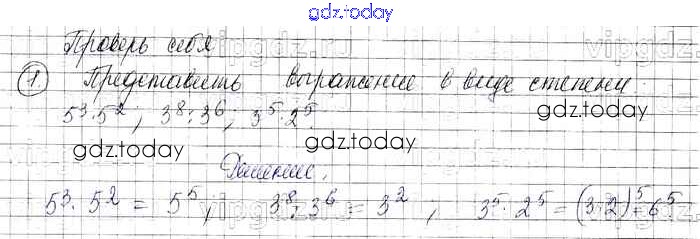 gdz.today
Проверь себя
vipgdz.ru
1. Представить выражение в виде степени.
5³·5², 3⁸:3⁶, 3⁵·2⁵
gdz.today
gdz.today
Решение.
5³·5² = 5⁵, 3⁸:3⁶ = 3², 3⁵·2⁵ = (3·2)⁵ = 6⁵